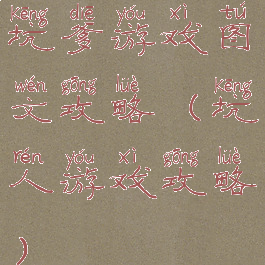 kēng diē yóu xì tú
坑爹游戏图
wén gōng lüè kēng
文攻略（坑
rén yóu xì gōng lüè
人游戏攻略
）